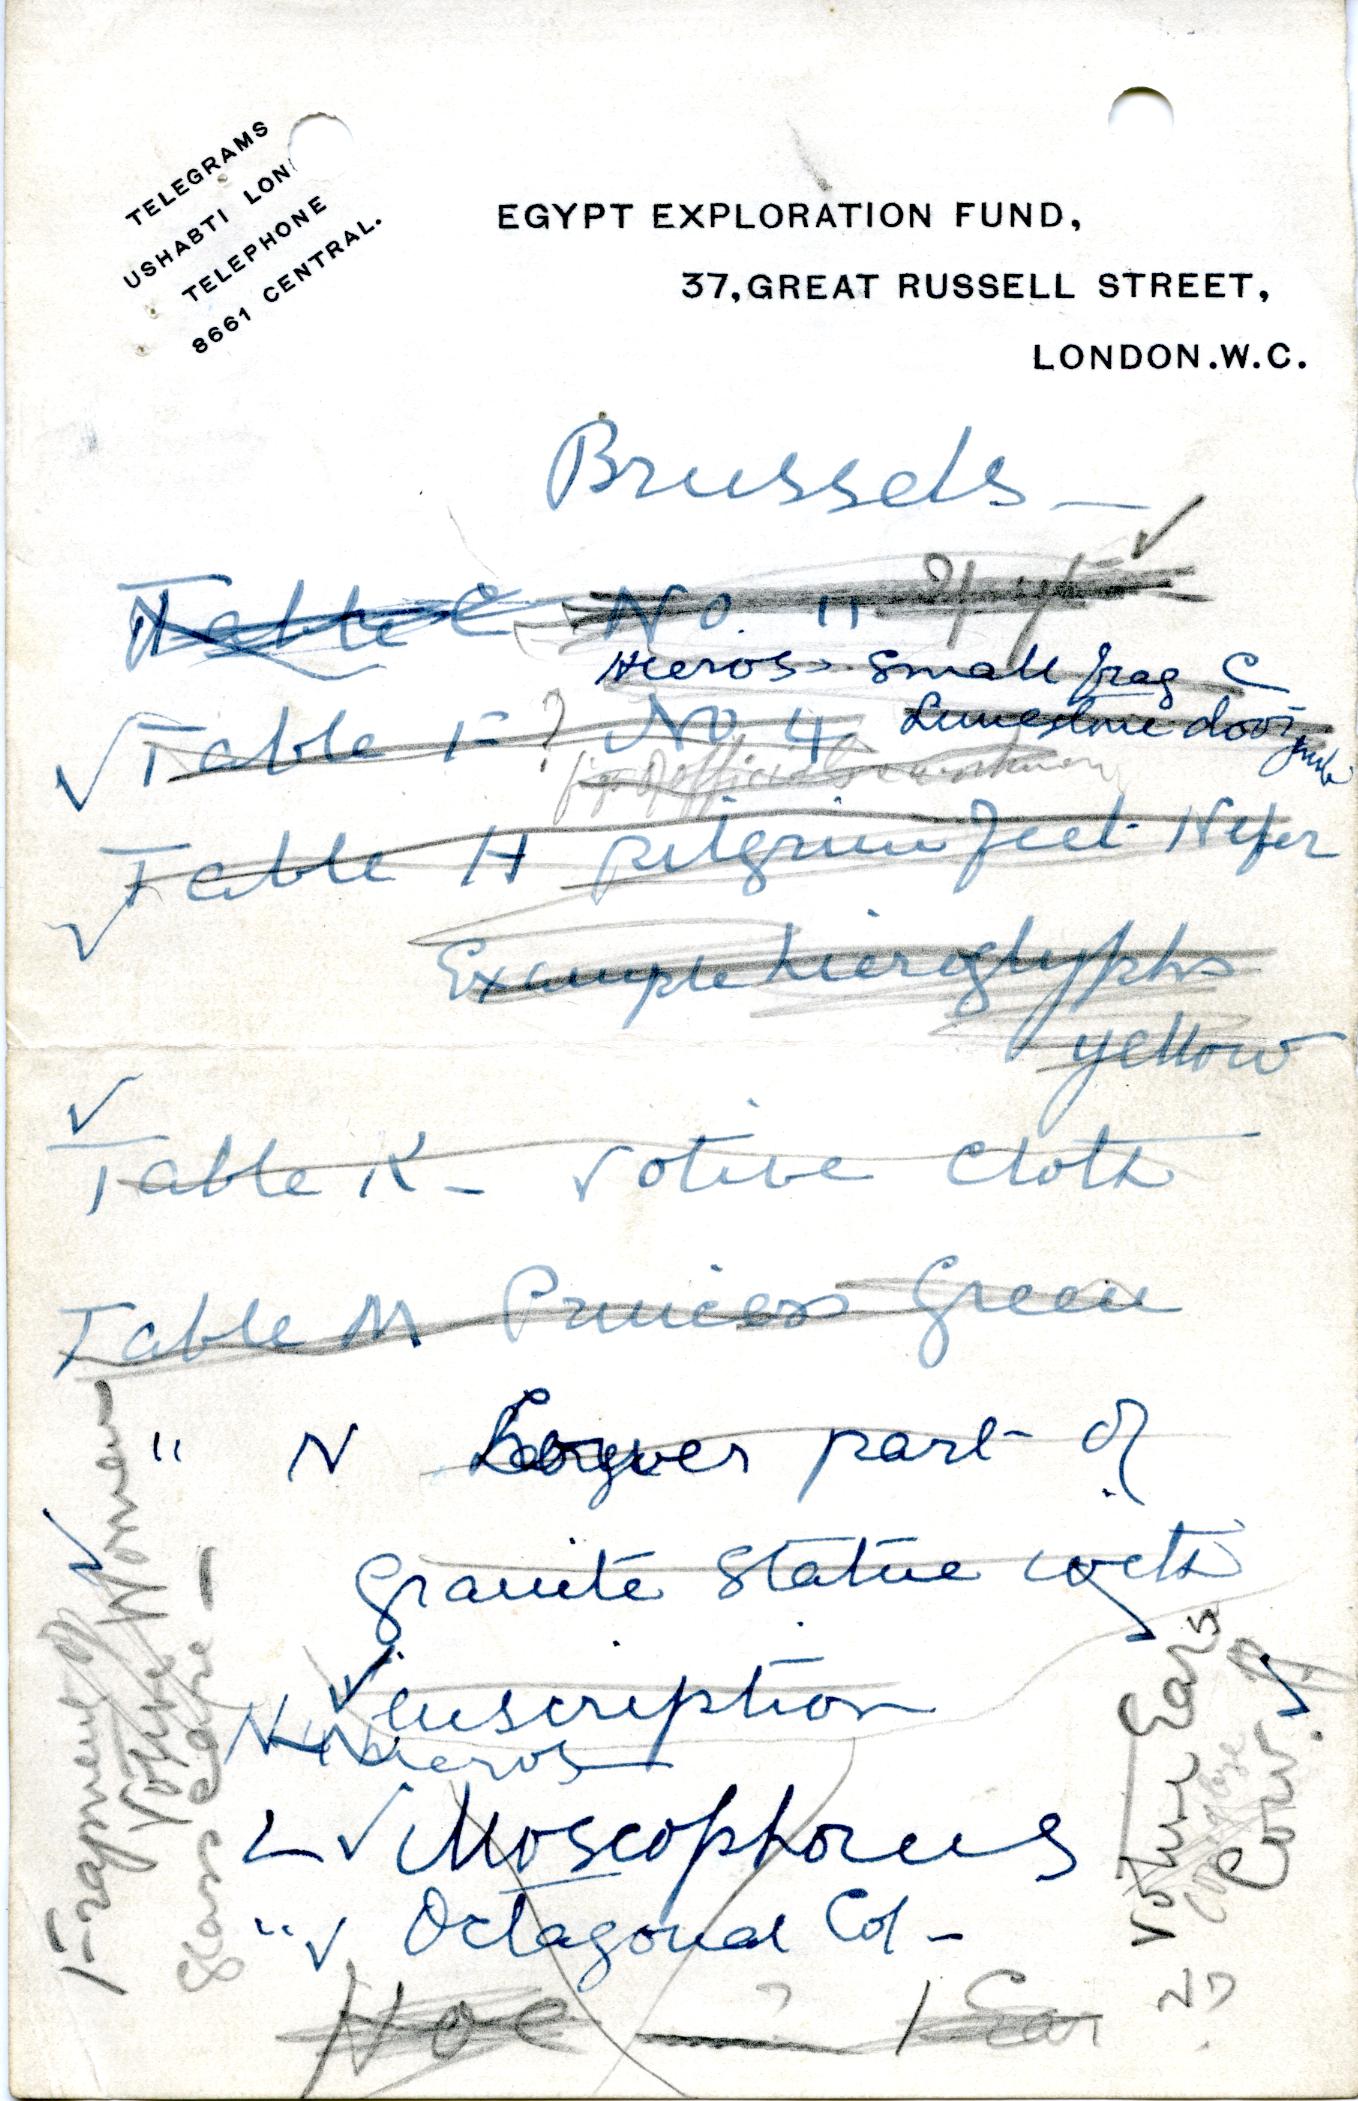 TELEGRAMS
USHABTI LON
TELEPHONE
8661 CENTRAL.
EGYPT EXPLORATION FUND,
37, GREAT RUSSELL STREET,
LONDON. W.C.
Brussels —
Table C No. 11
Hieros small frag C
Table F ? No 4 Limestone door jamb
Table H pilgrim feet Nefer
Example hieroglyphs
yellow
Table K - Votive cloth
Table M Princess Green
" N Lower part of
granite statue with
inscription
N Hieros
L Moscophorus
" Octagonal Col -
Hoe — ? 1 Ear
Fragment of Women
Votive
Glass
Votive Ears
Cow